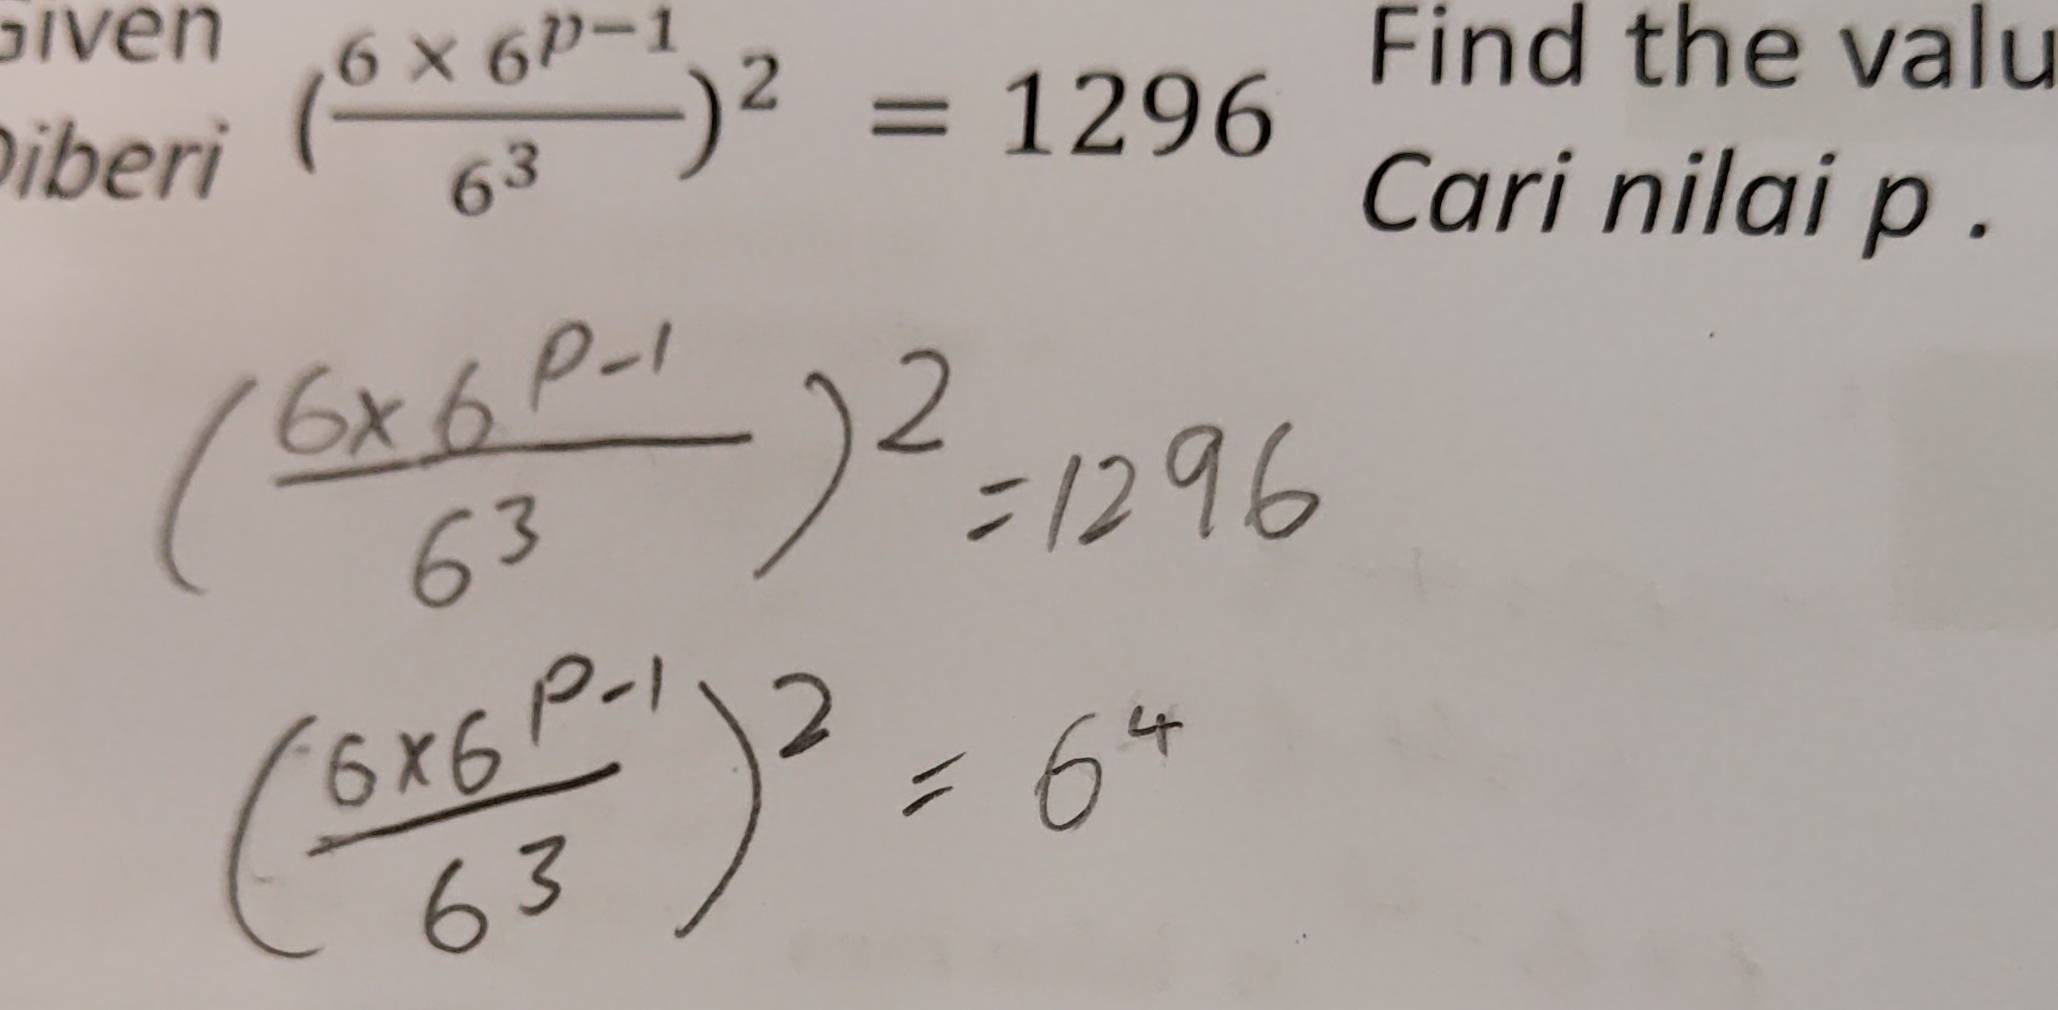 Given (6 × 6^{p−1} / 6^3)^2 = 1296 Find the valu
Diberi Cari nilai p .
(6 × 6^{p-1} / 6^3)^2 = 1296
(6 × 6^{p-1} / 6^3)^2 = 6^4